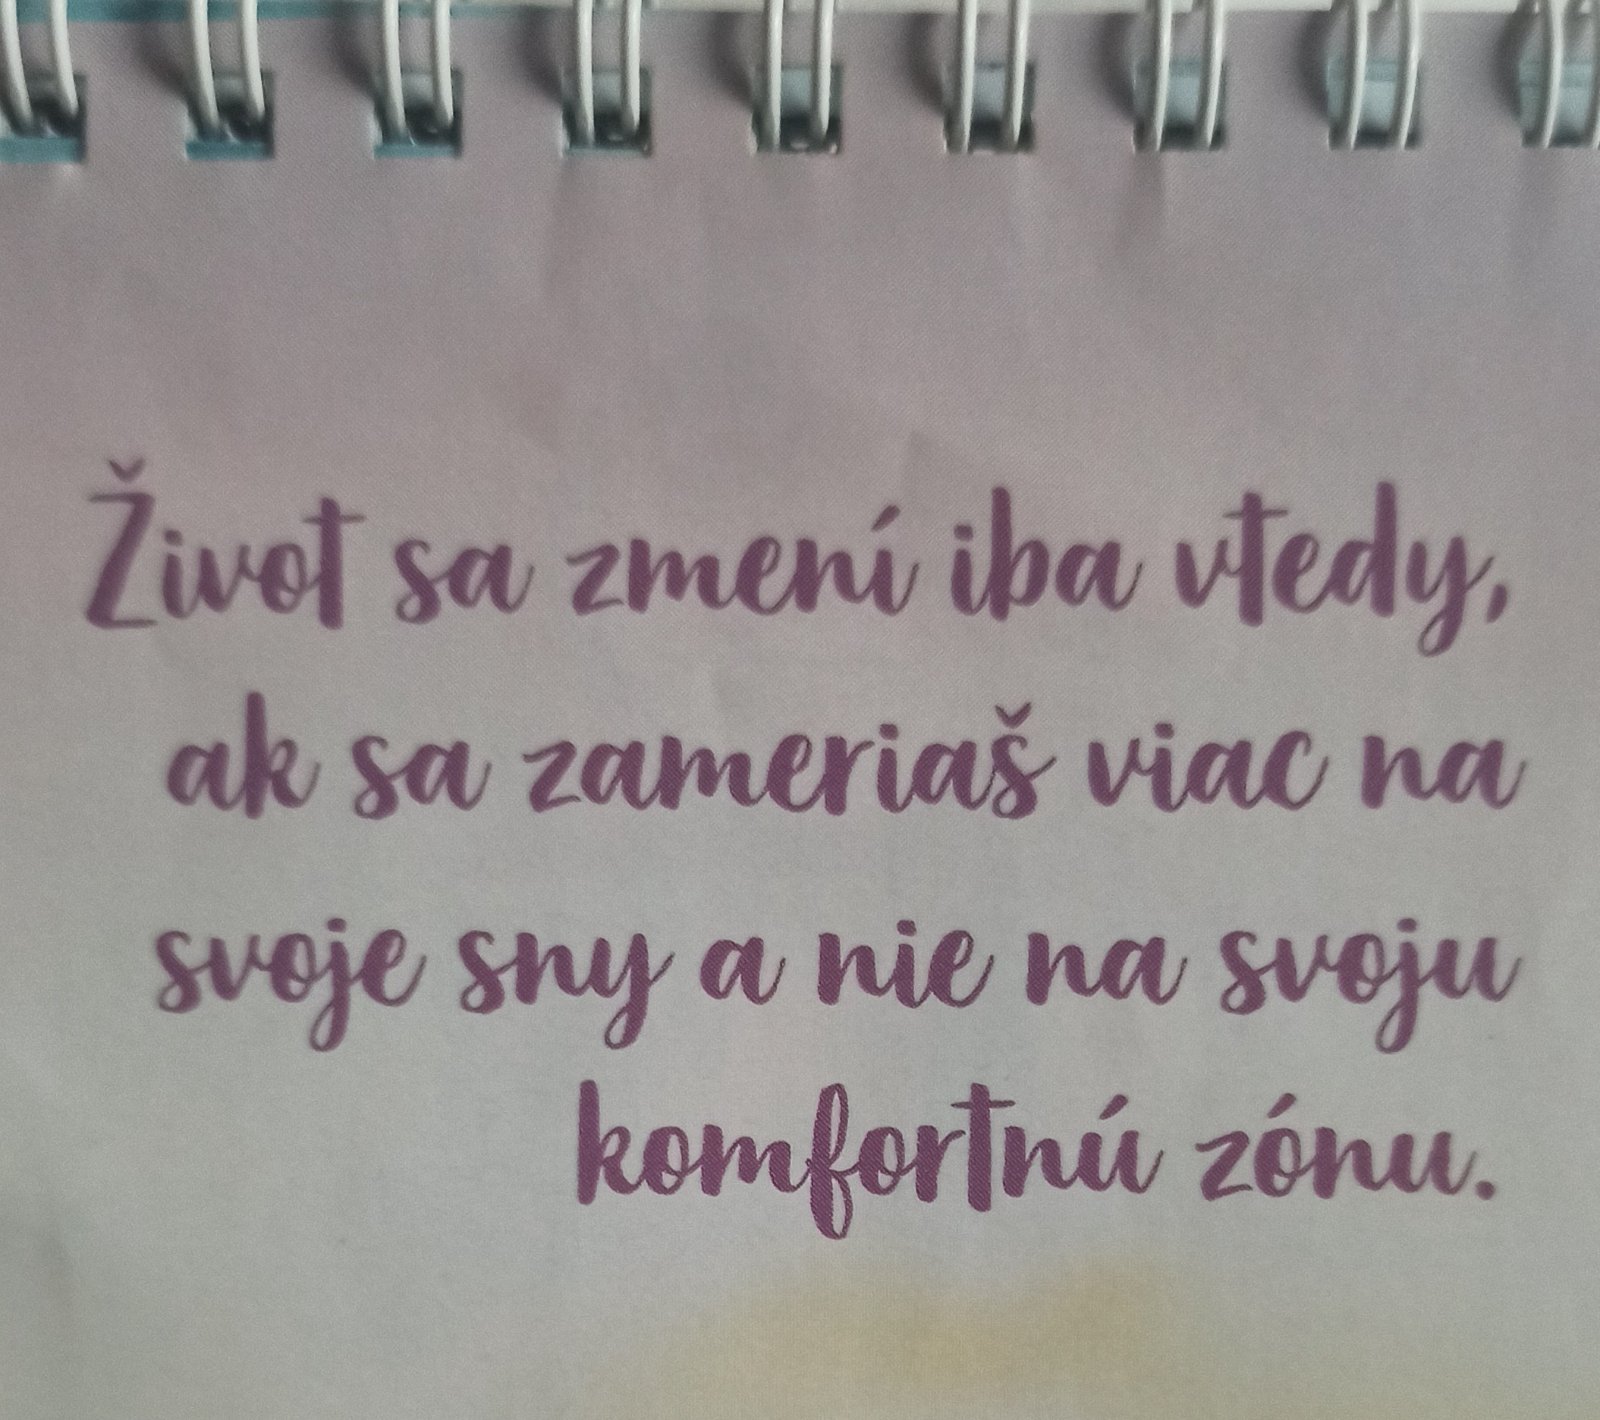 Život sa zmení iba vtedy,
ak sa zameriaš viac na
svoje sny a nie na svoju
komfortnú zónu.